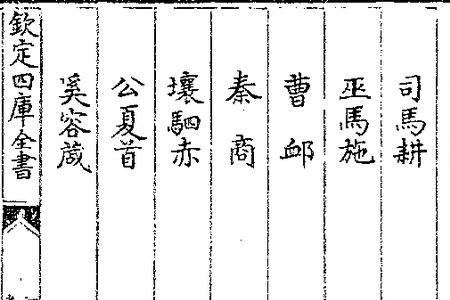 司馬耕
巫馬施
曹卹
秦商
壤駟赤
公夏首
奚容蒧
欽定四庫全書